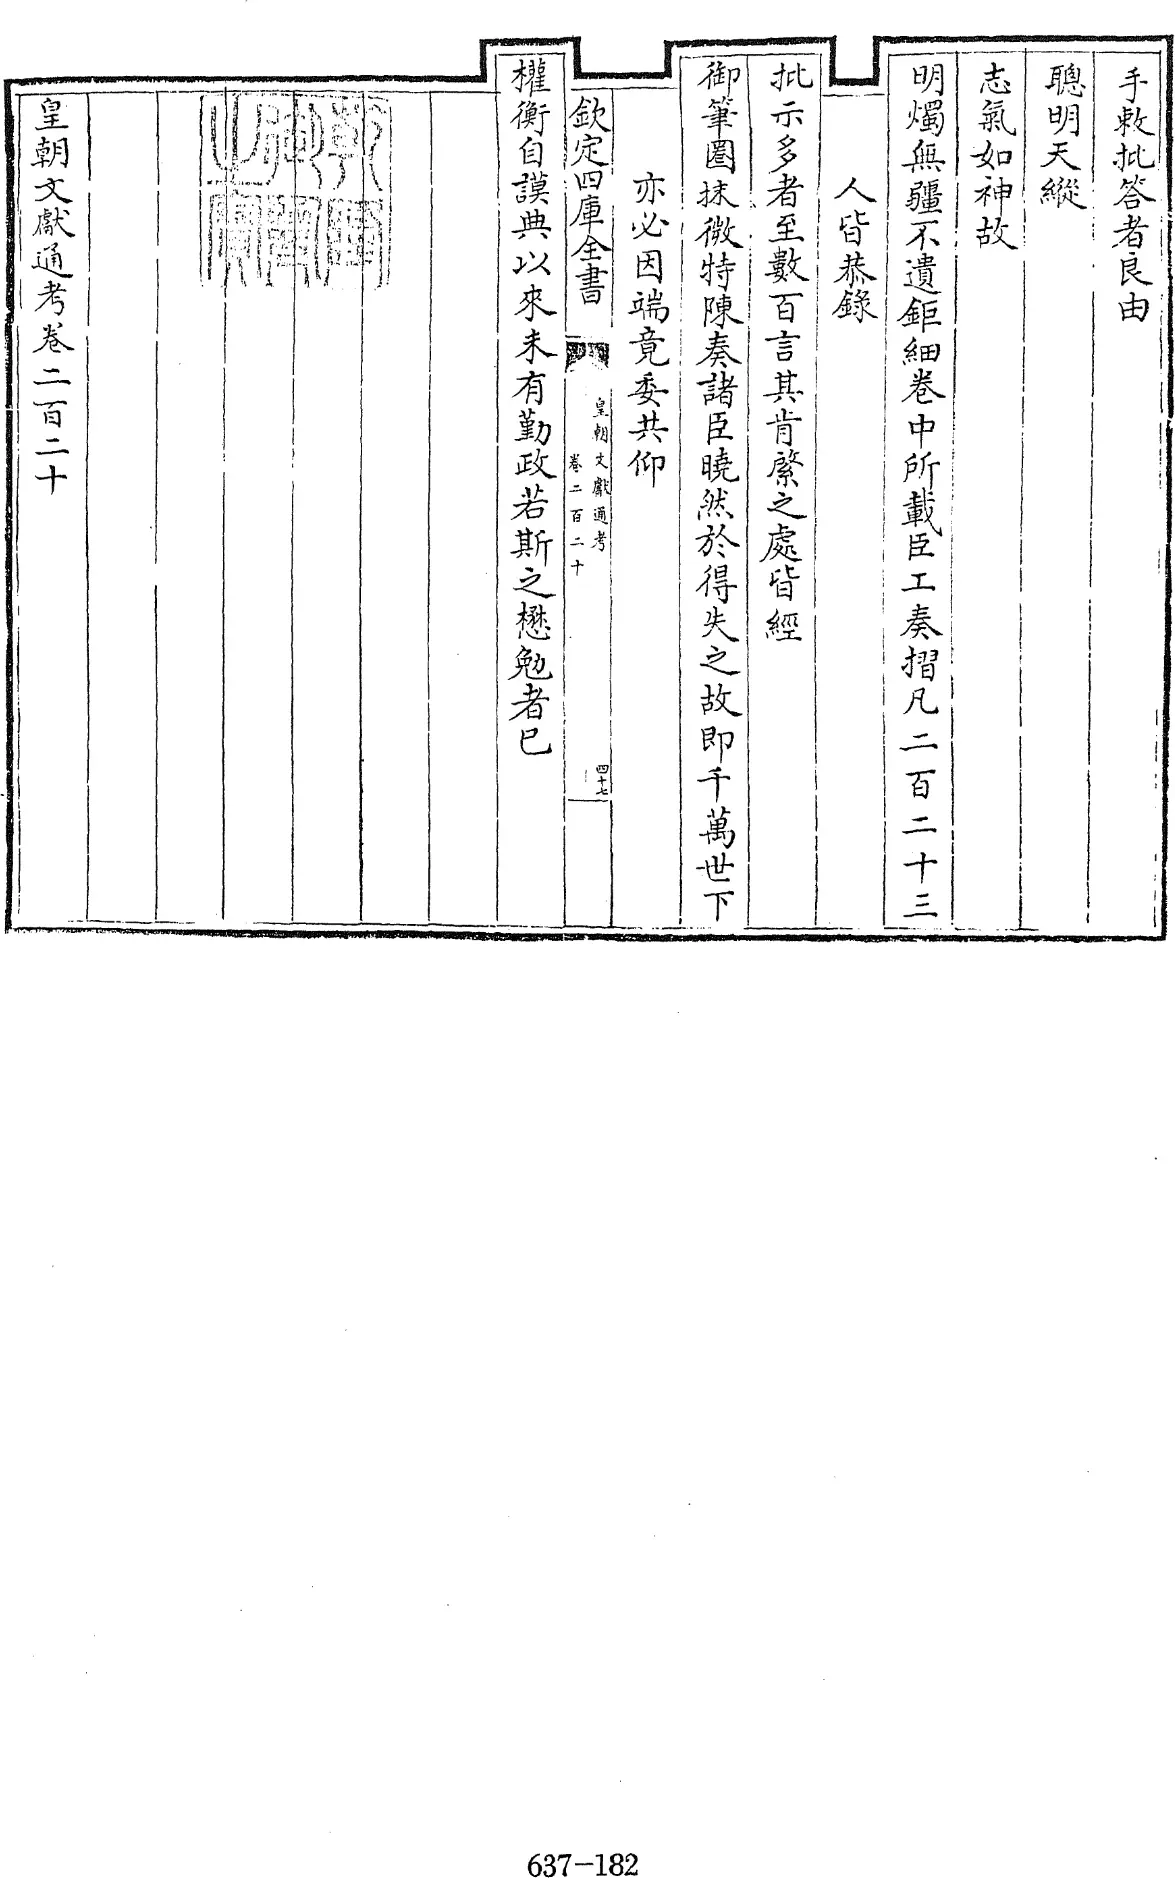 手敕批答者良由
聰明天縱
志氣如神故
明燭無疆不遺鉅細卷中所載臣工奏摺凡二百二十三
人皆恭錄
批示多者至數百言其肯綮之處皆經
御筆圈抹微特陳奏諸臣曉然於得失之故即千萬世下
亦必因端竟委共仰
欽定四庫全書
皇朝文獻通考
卷二百二十
四十七
權衡自謨典以來未有勤政若斯之懋勉者已
皇朝文獻通考卷二百二十
637-182